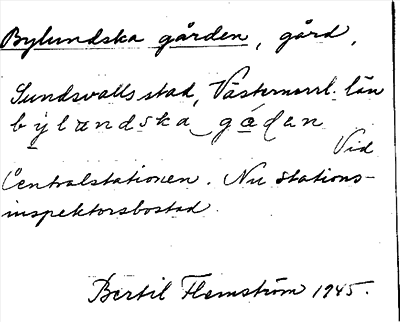 Bylundska gården, gård,
Sundsvalls stad, Västernorrl. län
bylandska gåden
Vid
Centralstationen. Nu stations-
inspektorsbostad.
Bertil Flemström 1945.